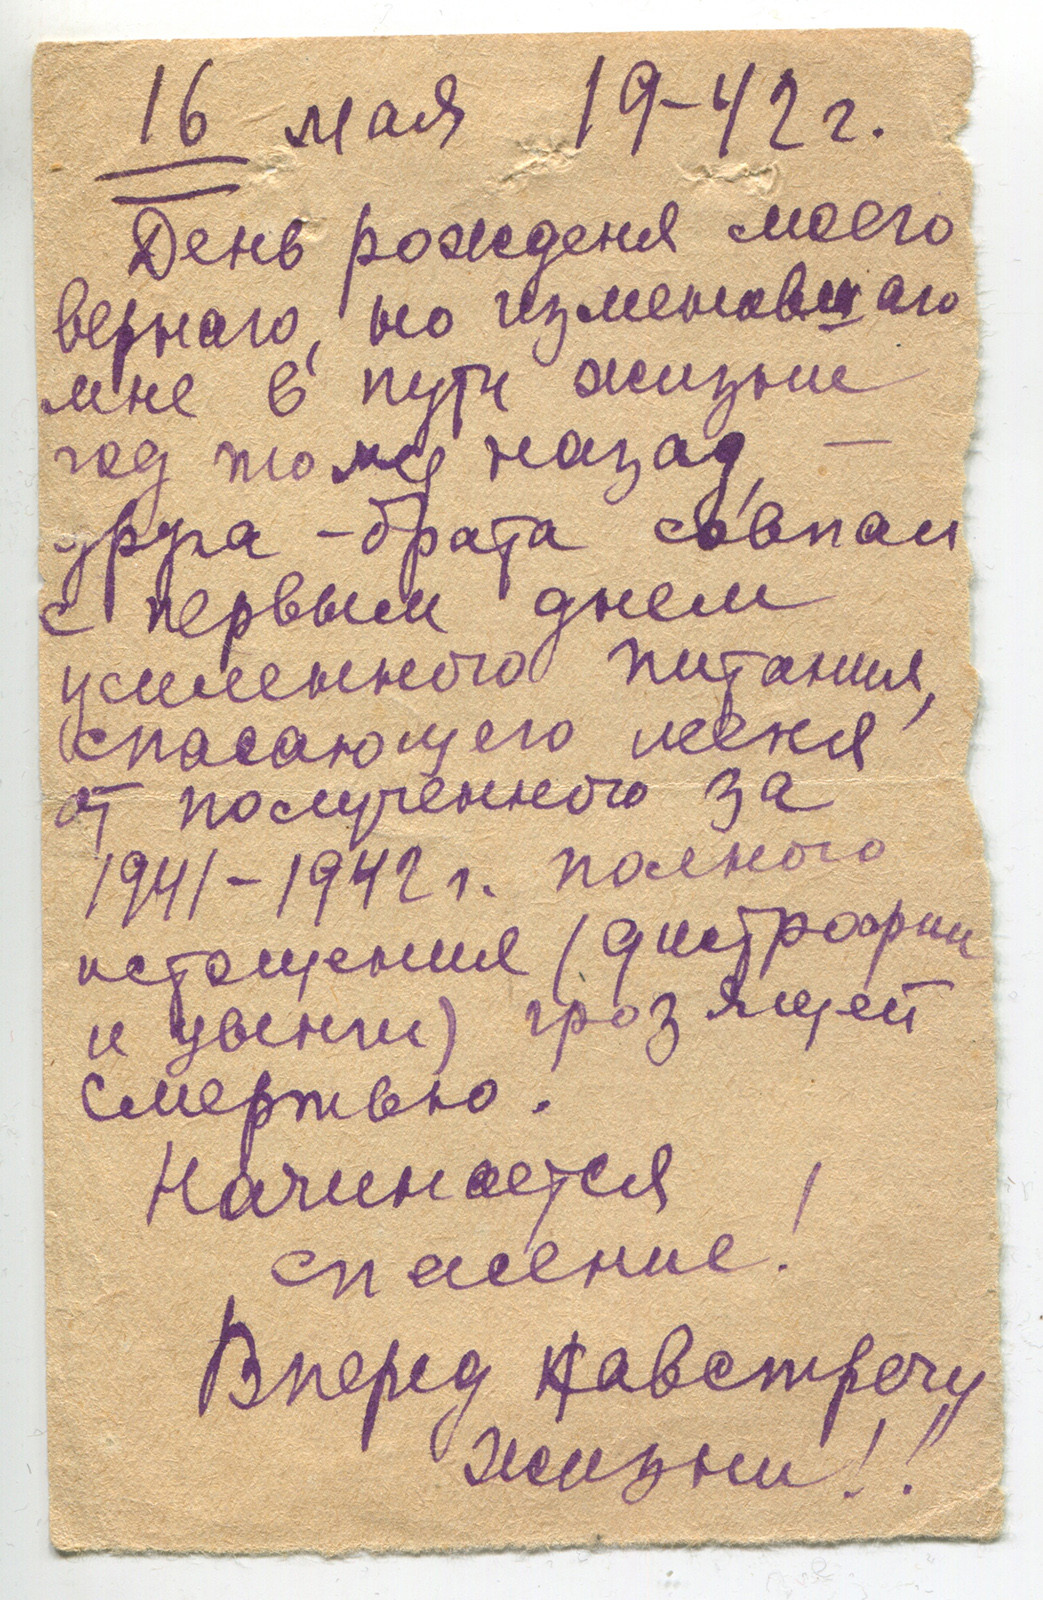 16 мая 19-42 г.
День рожденя моего
вернаго, но изменовшаго
мне в пути жизни
год тому назад —
друга - брата совпал
с первым днем
усиленного питания,
спасающего меня
от полученного за
1941-1942 г. полного
истощения (дистрофии
и цынги) грозящей
смертью.
Начинается
спасение!
Вперед навстречу
жизни!!